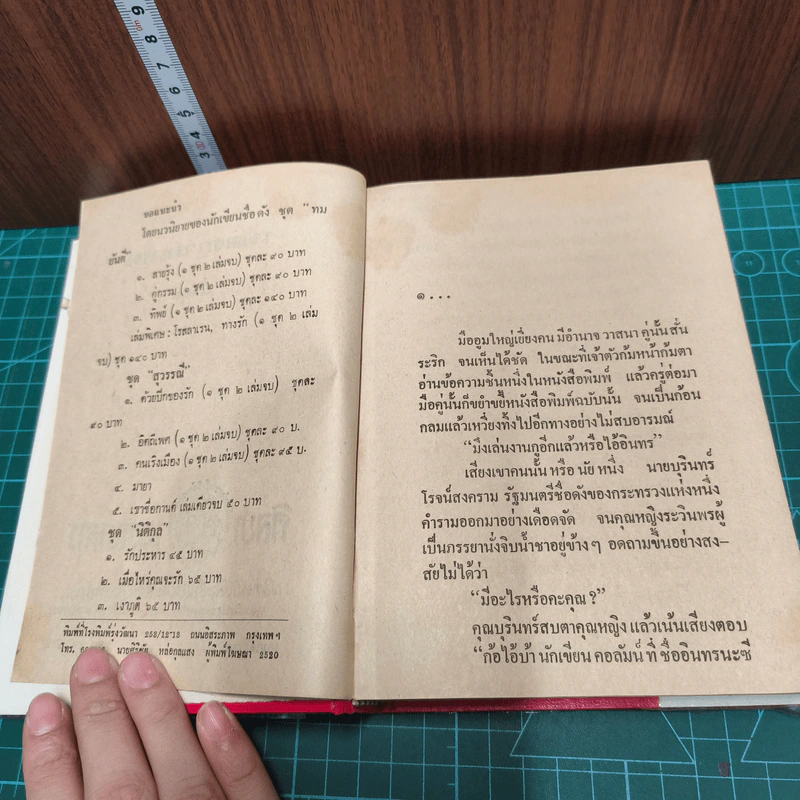 ขอแนะนำ
โดยนวนิยายของนักเขียนชื่อดัง ชุด "ทม
ยันตี"
๑. สายรุ้ง (๑ ชุด ๒ เล่มจบ) ชุดละ ๙๐ บาท
๒. คู่กรรม (๑ ชุด ๒ เล่มจบ) ชุดละ ๙๐ บาท
๓. ทิพย์ (๑ ชุด ๒ เล่มจบ) ชุดละ ๑๔๐ บาท
เล่มพิเศษ : โรสลาเรน, ทางรัก (๑ ชุด ๒ เล่ม
จบ) ชุด ๑๔๐ บาท
ชุด "สุวรรณี"
๑. ด้วยปีกของรัก (๑ ชุด ๒ เล่มจบ) ชุดละ
๙๐ บาท
๒. อคติเพศ (๑ ชุด ๒ เล่มจบ) ชุดละ ๙๐ บ.
๓. คนเริงเมือง (๑ ชุด ๒ เล่มจบ) ชุดละ ๙๕ บ.
๔. มายา
๕. เขาชื่อกานต์ เล่มเดียวจบ ๕๐ บาท
ชุด "นิติกุล"
๑. รักประหาร ๔๕ บาท
๒. เมื่อไหร่คุณจะรัก ๖๕ บาท
๓. เงาภูติ ๖๕ บาท
พิมพ์ที่โรงพิมพ์รุ่งวัฒนา 258/12-13 ถนนอิสระภาพ กรุงเทพฯ
โทร. นายศิริชัย หล่อกุลแสง ผู้พิมพ์โฆษณา 2520
๑...
มืออูมใหญ่เยี่ยงคน มีอำนาจ วาสนา คู่นั้น สั่น
ระริก จนเห็นได้ชัด ในขณะที่เจ้าตัวก้มหน้าก้มตา
อ่านข้อความชิ้นหนึ่งในหนังสือพิมพ์ แล้วครู่ต่อมา
มือคู่นั้นก็ขยำขยี้หนังสือพิมพ์ฉบับนั้น จนเป็นก้อน
กลมแล้วเหวี่ยงทิ้งไปอีกทางอย่างไม่สบอารมณ์
"มึงเล่นงานกูอีกแล้วหรือไอ้อินทร"
เสียงเขาคนนั้น หรือ นัย หนึ่ง นายบุรินทร์
โรจน์สงคราม รัฐมนตรีชื่อดังของกระทรวงแห่งหนึ่ง
คำรามออกมาอย่างเดือดจัด จนคุณหญิงระวินพรผู้
เป็นภรรยานั่งจิบน้ำชาอยู่ข้าง ๆ อดถามขึ้นอย่างสง-
สัยไม่ได้ว่า
"มีอะไรหรือคะคุณ ?"
คุณบุรินทร์สบตาคุณหญิง แล้วเน้นเสียงตอบ
"ก้อไอ้บ้า นักเขียน คอลัมน์ ที่ ชื่ออินทรนะซี
3 4 5 6 7 8 9